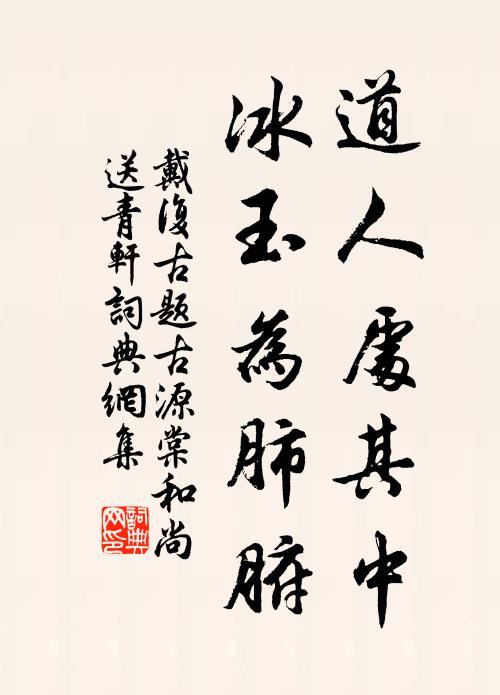 道人處其中
冰玉為肺腑
戴復古题古源棠和尚
送青軒詞典網集
詞典
网印